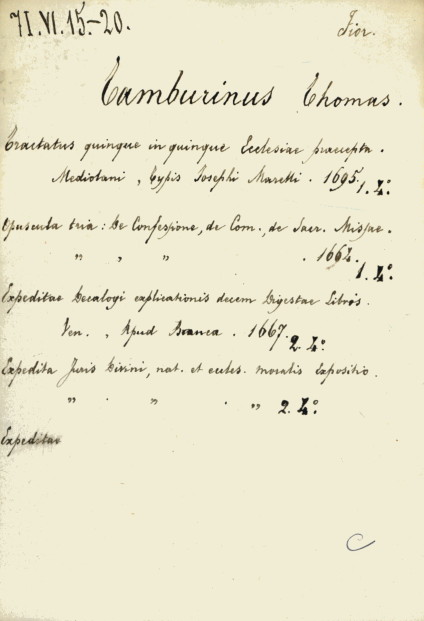 71.VI.15.-20.
Fior.
Tamburinus Thomas.
Tractatus quinque in quinque Ecclesiae praecepta.
Mediolani, Typis Josephi Marelli. 1695. 1. 4°.
Opuscula tria: De Confessione, de Com., de Sacr. Missae.
" , " . 1662.
1. 4°.
Expeditae Decalogi explicationis decem Digestae Libris.
Ven., Apud Banca. 1667. 2. 4°.
Expedita Juris Divini, nat. et eccles. moralis Expositio.
" . " . " 2. 4°.
Expeditae
C